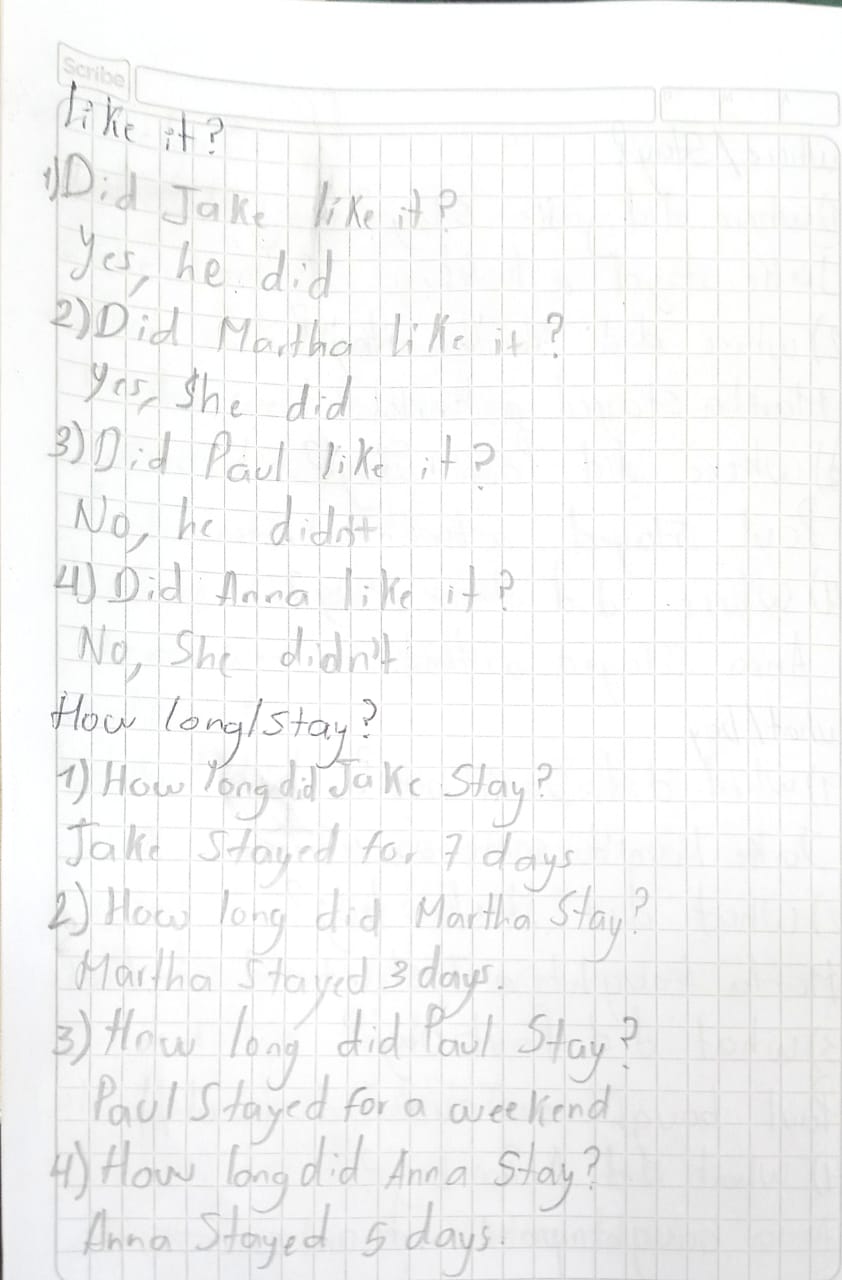 Scribe
Like it?
1) Did Jake like it?
Yes, he did
2) Did Martha like it?
Yes, She did
3) Did Paul like it?
No, he didn't
4) Did Anna like it?
No, She didn't
How long/Stay?
1) How long did Jake Stay?
Jake Stayed for 7 days
2) How long did Martha Stay?
Martha Stayed 3 days.
3) How long did Paul Stay?
Paul Stayed for a weekend
4) How long did Anna Stay?
Anna Stayed 5 days.